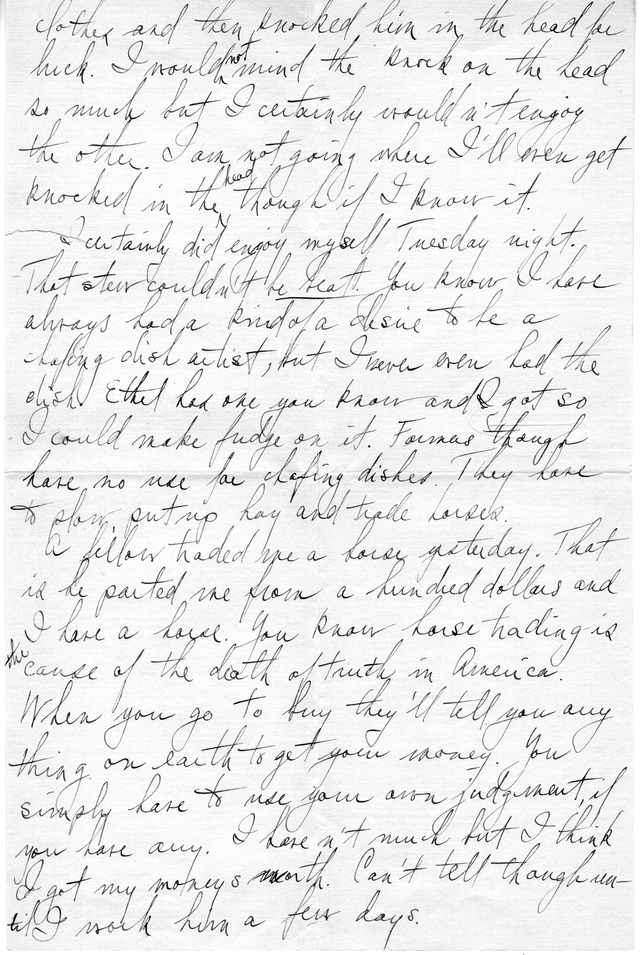 clothes and then knocked him in the head for
luck. I would not mind the knock on the head
so much but I certainly would n't enjoy
the other. I am not going where I'll even get
knocked in the head though if I know it.
I certainly did enjoy myself Tuesday night.
That stew couldn't be beat. You know I have
always had a kind of a desire to be a
chafing dish artist, but I never even had the
dish. Ethel had one you know and I got so
I could make fudge on it. Farmers though
have no use for chafing dishes. They have
to plow, put up hay and trade horses.
A fellow traded me a horse yesterday. That
is he parted me from a hundred dollars and
I have a horse. You know horse trading is
the cause of the death of truth in America.
When you go to buy they'll tell you any
thing on earth to get your money. You
simply have to use your own judgment, if
you have any. I have n't much but I think
I got my moneys worth. Can't tell though un-
til I work him a few days.